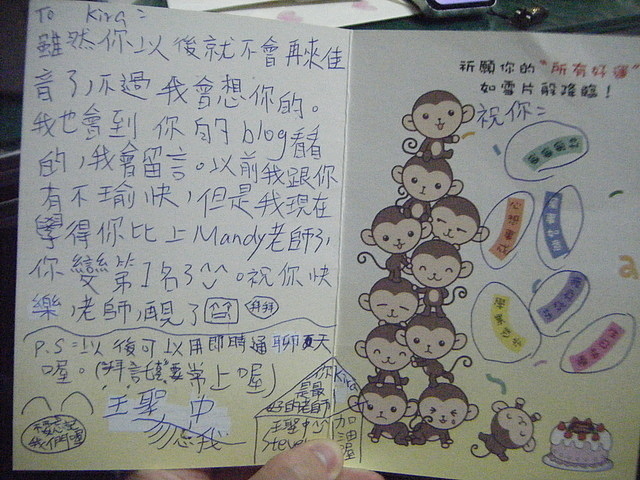 To Kira:
雖然你以後就不會再來佳
音了,不過我會想你的。
我也會到你的blog看看
的,我會留言。以前我跟你
有不瑜快,但是我現在
學得你比上Mandy老師了,
你變第1名了^^。祝你快
樂,老師,再見了
拜拜
P.S=以後可以用即時通聊天
喔。常上喔)
王聖中
勿忘我
我們喔
你Kira
是最
好的老師
王聖中
Steve
加油喔
祈願你的"所有好運"
如雪片般降臨!
祝你=
心想事成
萬事如意
學業進步
生日快樂